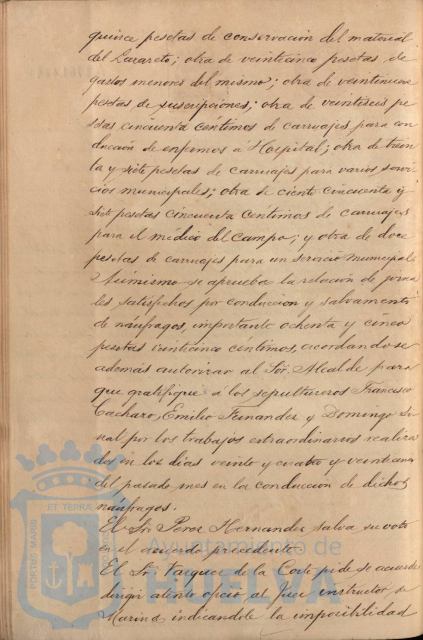 quince pesetas de conservación del material
del Lazareto; otra de veinticinco pesetas de
gastos menores del mismo; otra de veintinueve
pesetas de suscripciones; otra de veintiseis pe
setas cincuenta céntimos de carruajes para con
ducción de enfermos á Hospital; otra de trein
ta y siete pesetas de carruajes para varios servi
cios municipales; otra de ciento cincuenta y
siete pesetas cincuenta céntimos de carruajes
para el médico del Campo; y otra de doce
pesetas de carruajes para un servicio municipal.
Asimismo se aprueba la relación de jorna
les satisfechos por conducción y salvamento
de náufragos, importante ochenta y cinco
pesetas veinticinco céntimos, acordandose
ademas autorizar al Sor. Alcalde para
que gratifique á los sepultureros Francisco
Cacharo, Emilio Fernandez y Domingo
por los trabajos extraordinarios realiza
dos en los dias veinte y cuatro y veinticinco
del pasado mes en la conducción de dichos
náufragos.
El Sr. Perez Hernandez salva su voto
en el acuerdo precedente.
El Sr. Vazquez de la Corte pide se acuerde
dirigir atento oficio al Juez instructor de
Marina indicandole la imposibilidad
PORTUS MARIS ET TERRAE
Ayuntamiento de
HUELVA